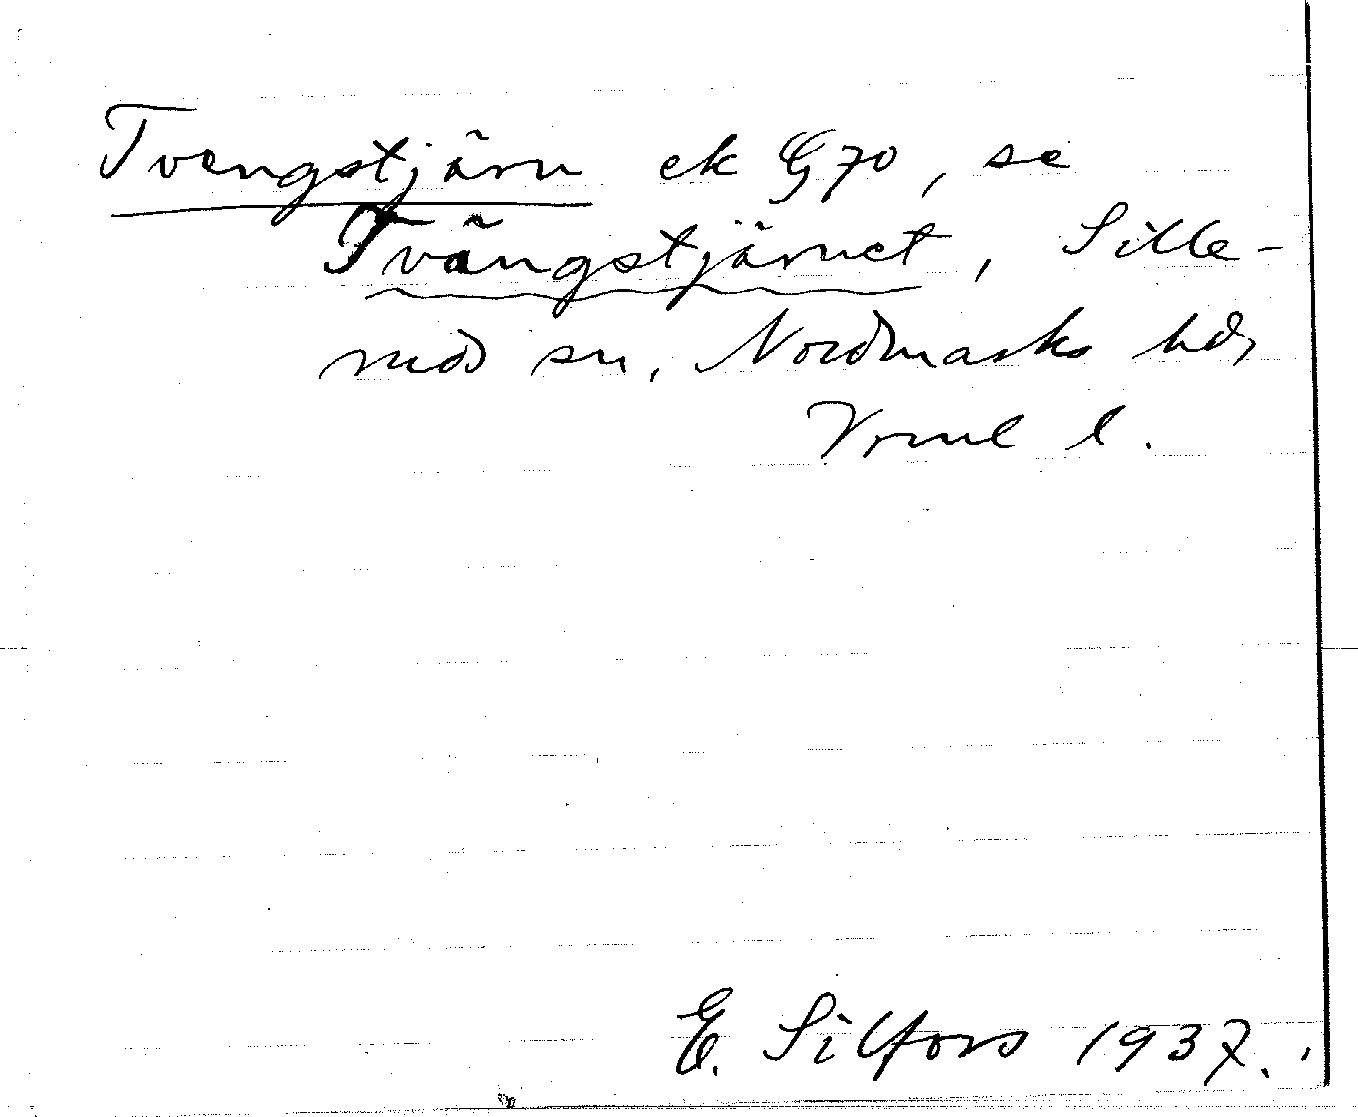 Tvengstjärn ek G70, se
Tvängstjärnet, Sille-
rud sn, Nordmarks hd,
Vrml l.
E. Silfors 1937.